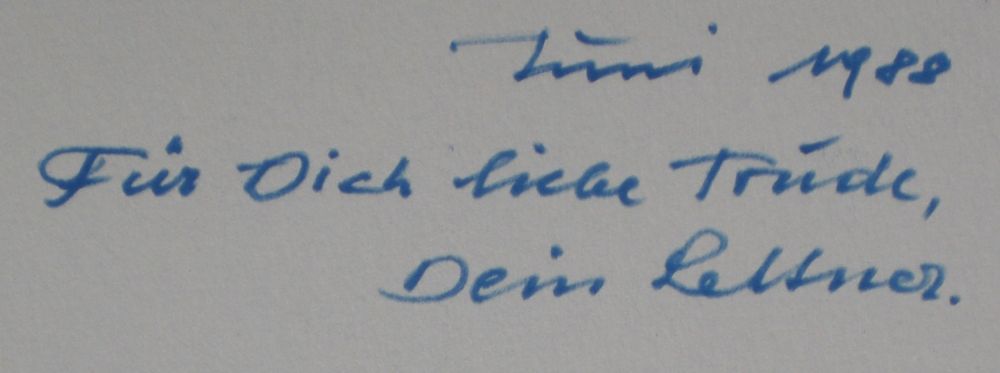 Juni 1988
Für Dich liebe Trude,
Dein Lettner.